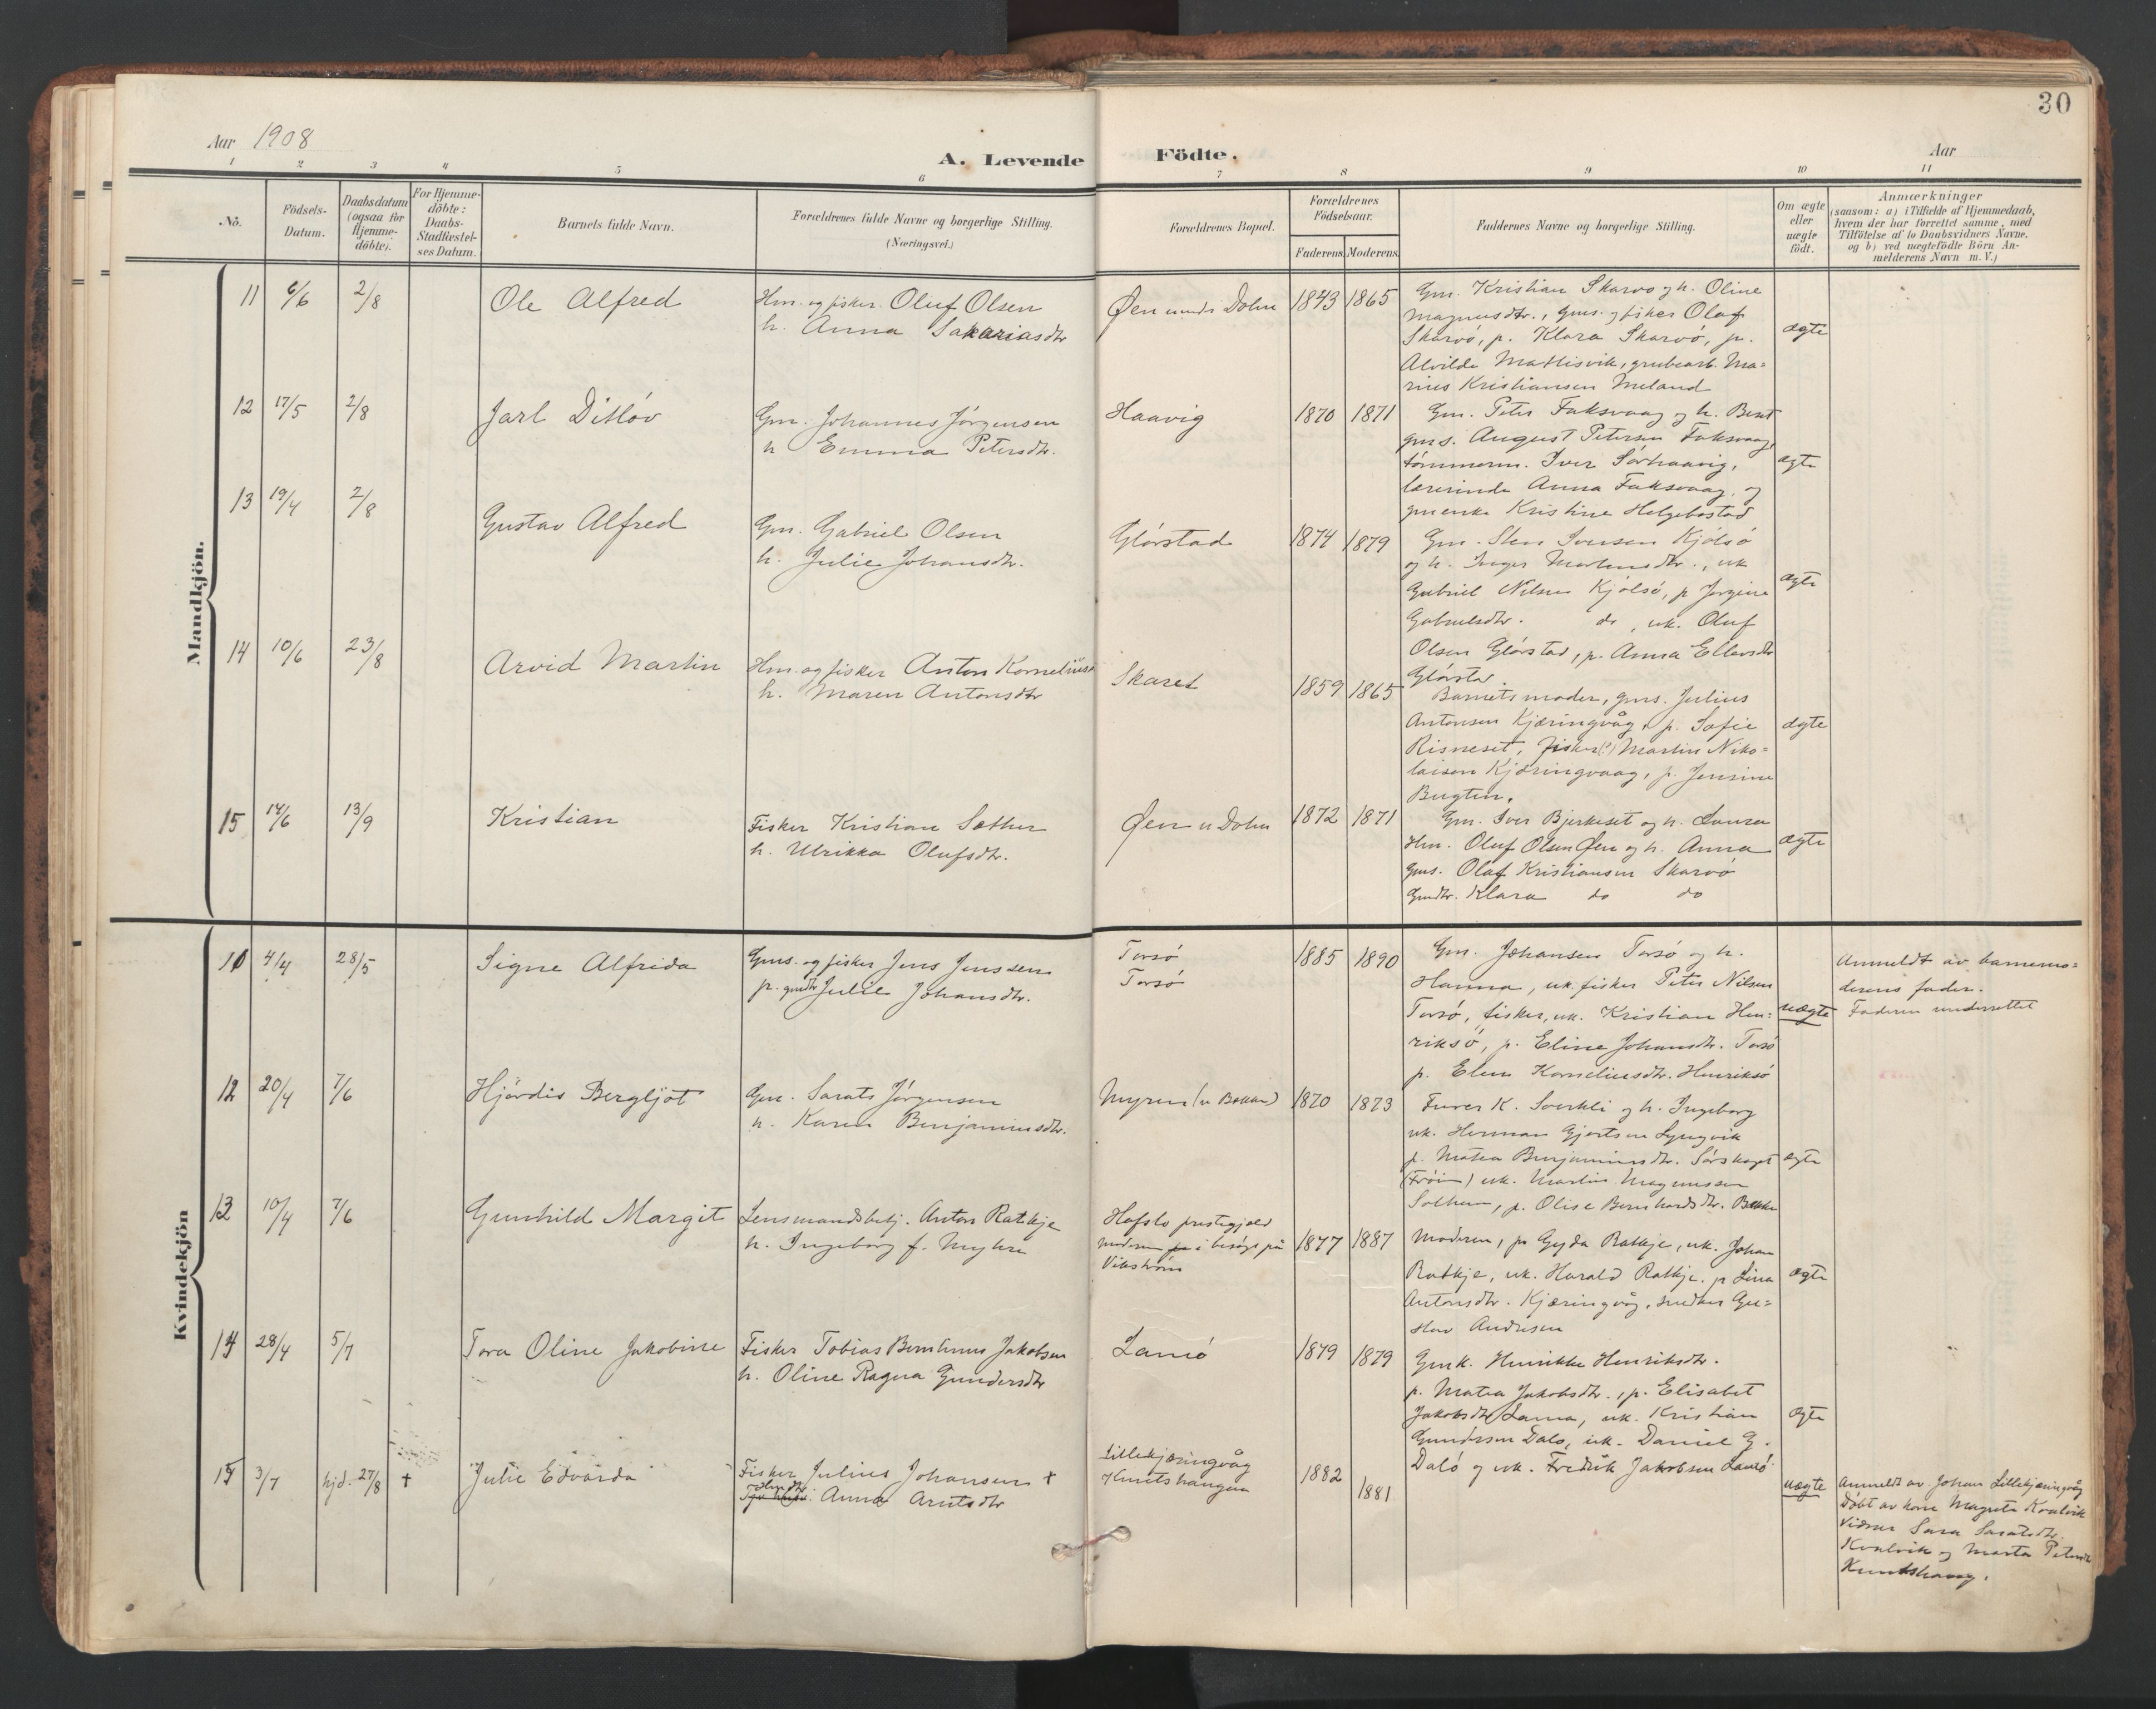 30
Aar 1908
A. Levende Födte.
Aar
1 2 3 4 5 6 7 8 9 10 11
No.
Födsels-
Datum.
Daabsdatum
(ogsaa for
Hjemme-
döbte).
For Hjemme-
döbte:
Daabs-
Stadfæstel-
ses Datum.
Barnets fulde Navn.
Forældrenes fulde Navne og borgerlige Stilling.
(Næringsvei.)
Forældrenes Bopæl.
Forældrenes
Födselsaar.
Faderens Moderens
Faddernes Navne og borgerlige Stilling.
Om ægte
eller
uægte
födt.
Anmærkninger
(saasom: a) i Tilfælde af Hjemmedaab,
hvem der har forrettet samme, med
Tilföielse af to Daabsvidners Navne,
og b) ved uægtefödte Börn An-
melderens Navn m. V.)
Mandkjön.
11 6/6 2/8 Ole Alfred
Hm. og fisker Oluf Olsen
h. Anna Sakariasdtr
Øen unde Dolm 1843 1865
Gm. Kristian Skarvø og h. Oline
Magnusdtr., gms. og fisker Olaf
Skarvö, p. Klara Skarvö, p.
Alvilde Mattisvik, grubearb. Ma-
rius Kristiansen Meland
ægte
12 17/5 2/8 Jarl Ditlöv
Gm. Johannes Jörgensen
h Emma Petersdtr.
Haavig 1870 1871
Gm. Peter Faksvaag og h. Berit
gms. August Petersen Faksvaag,
tömmerm. Iver Sörhaavig,
lærerinde Anna Faksvaag, og
gmenke Kristine Helgebostad
ægte
13 19/4 2/8 Gustav Alfred
Gm. Gabriel Olsen
h. Julie Johansdtr.
Glörstad 1874 1879
Gm. Sten Iversen Kjölsö
og h. Inger Martinsdtr., uk
Gabriel Nilsen Kjölsö, p Jørgine
Gabrielsdtr. do, uk. Oluf
Olsen Glörstad, p. Anna Ellevsdtr
Glörstad.
ægte
14 10/6 23/8 Arvid Martin
Hm. og fisker Anton Kornelius
h. Maren Antonsdtr
Skaret 1859 1865
Barnets moder, gms. Julius
Antonsen Kjæringvåg, p. Sofie
Risneset, fisker(?) Martin Niko-
laisen Kjæringvaag, p. Jensine
Bugten.
ægte
15 14/6 13/9 Kristian
Fisker Kristian Sæther
h. Ulrikka Olufsdtr.
Øen u Dolm 1872 1871
Gm. Iver Bjerkeset og h. Laura
Hm. Oluf Olsen Øen og h. Anna
gms. Olaf Kristiansen Skarvö
Gmdtr. Klara do do
ægte
Kvindekjön
11 4/4 28/5 Signe Alfrida
Gms. og fisker Jens Jenssen
p. gmdtr Julie Johansdtr.
Torsö
Torsö
1885 1890
Gm. Johansen Torsö og h.
Hanna, uk. fisker Peter Nilsen
Torsö, fisker, uk. Kristian Hen-
riksö, p. Eline Johansdtr. Torsö
p. Elen Korneliusdtr. Henriksö
uægte
Anmeldt av barnemo-
derens fader.
Faderen underrettet
12 20/4 7/6 Hjördis Bergljot
Gm. Sarats Jörgensen
h. Karen Benjaminsdtr.
Myren (u Bakken) 1870 1873
Furer K. Sverkli og h. Ingeborg
uk. Herman Gjertsen Lyngvik
p. Matea Benjaminsdtr. Sörskaget
(Fröien) uk. Martin Magnussen
Solhem, p. Olise Bernhardsdtr. Bakken
ægte
13 10/4 7/6 Gunhild Margit
Lensmandsbetj. Anton Ratkje
h. Ingeborg f. Myhre
Hafslo prestegjeld
moderen i besög på
Vikström
1877 1887
Moderen, p Gyda Ratkje, uk. Johan
Ratkje, uk. Harald Ratkje. p Lina
Antonsdtr. Kjæringvåg, snedker Gu-
stav Andresen
ægte
14 28/4 5/7 Tora Oline Jakobine
Fisker Tobias Berntinus Jakobsen
h. Oline Ragna Gundersdtr
Lamö 1879 1879
Gmk. Henrikke Henriksdtr.
p. Matea Jakobsdtr., p. Elisabet
Jakobsdtr Lamö, uk. Kristian
Gundersen Dalö, uk. Daniel G.
Dalö og uk. Fredrik Jakobsen Lamö
ægte
15 3/7 hjd. 27/8 † Julie Edvarda
Fisker Julius Johansen †
Hmdtr. Anna Arntsdtr
Lillekjæringvåg
Knutshaugen
1882 1881
uægte
Anmeldt av Johan Lillekjæringvåg
Döbt av kone Magrete Kvalvik
Vidner Sara Saratsdtr.
Kvalvik og Marta Petersdtr
Knutshaug.